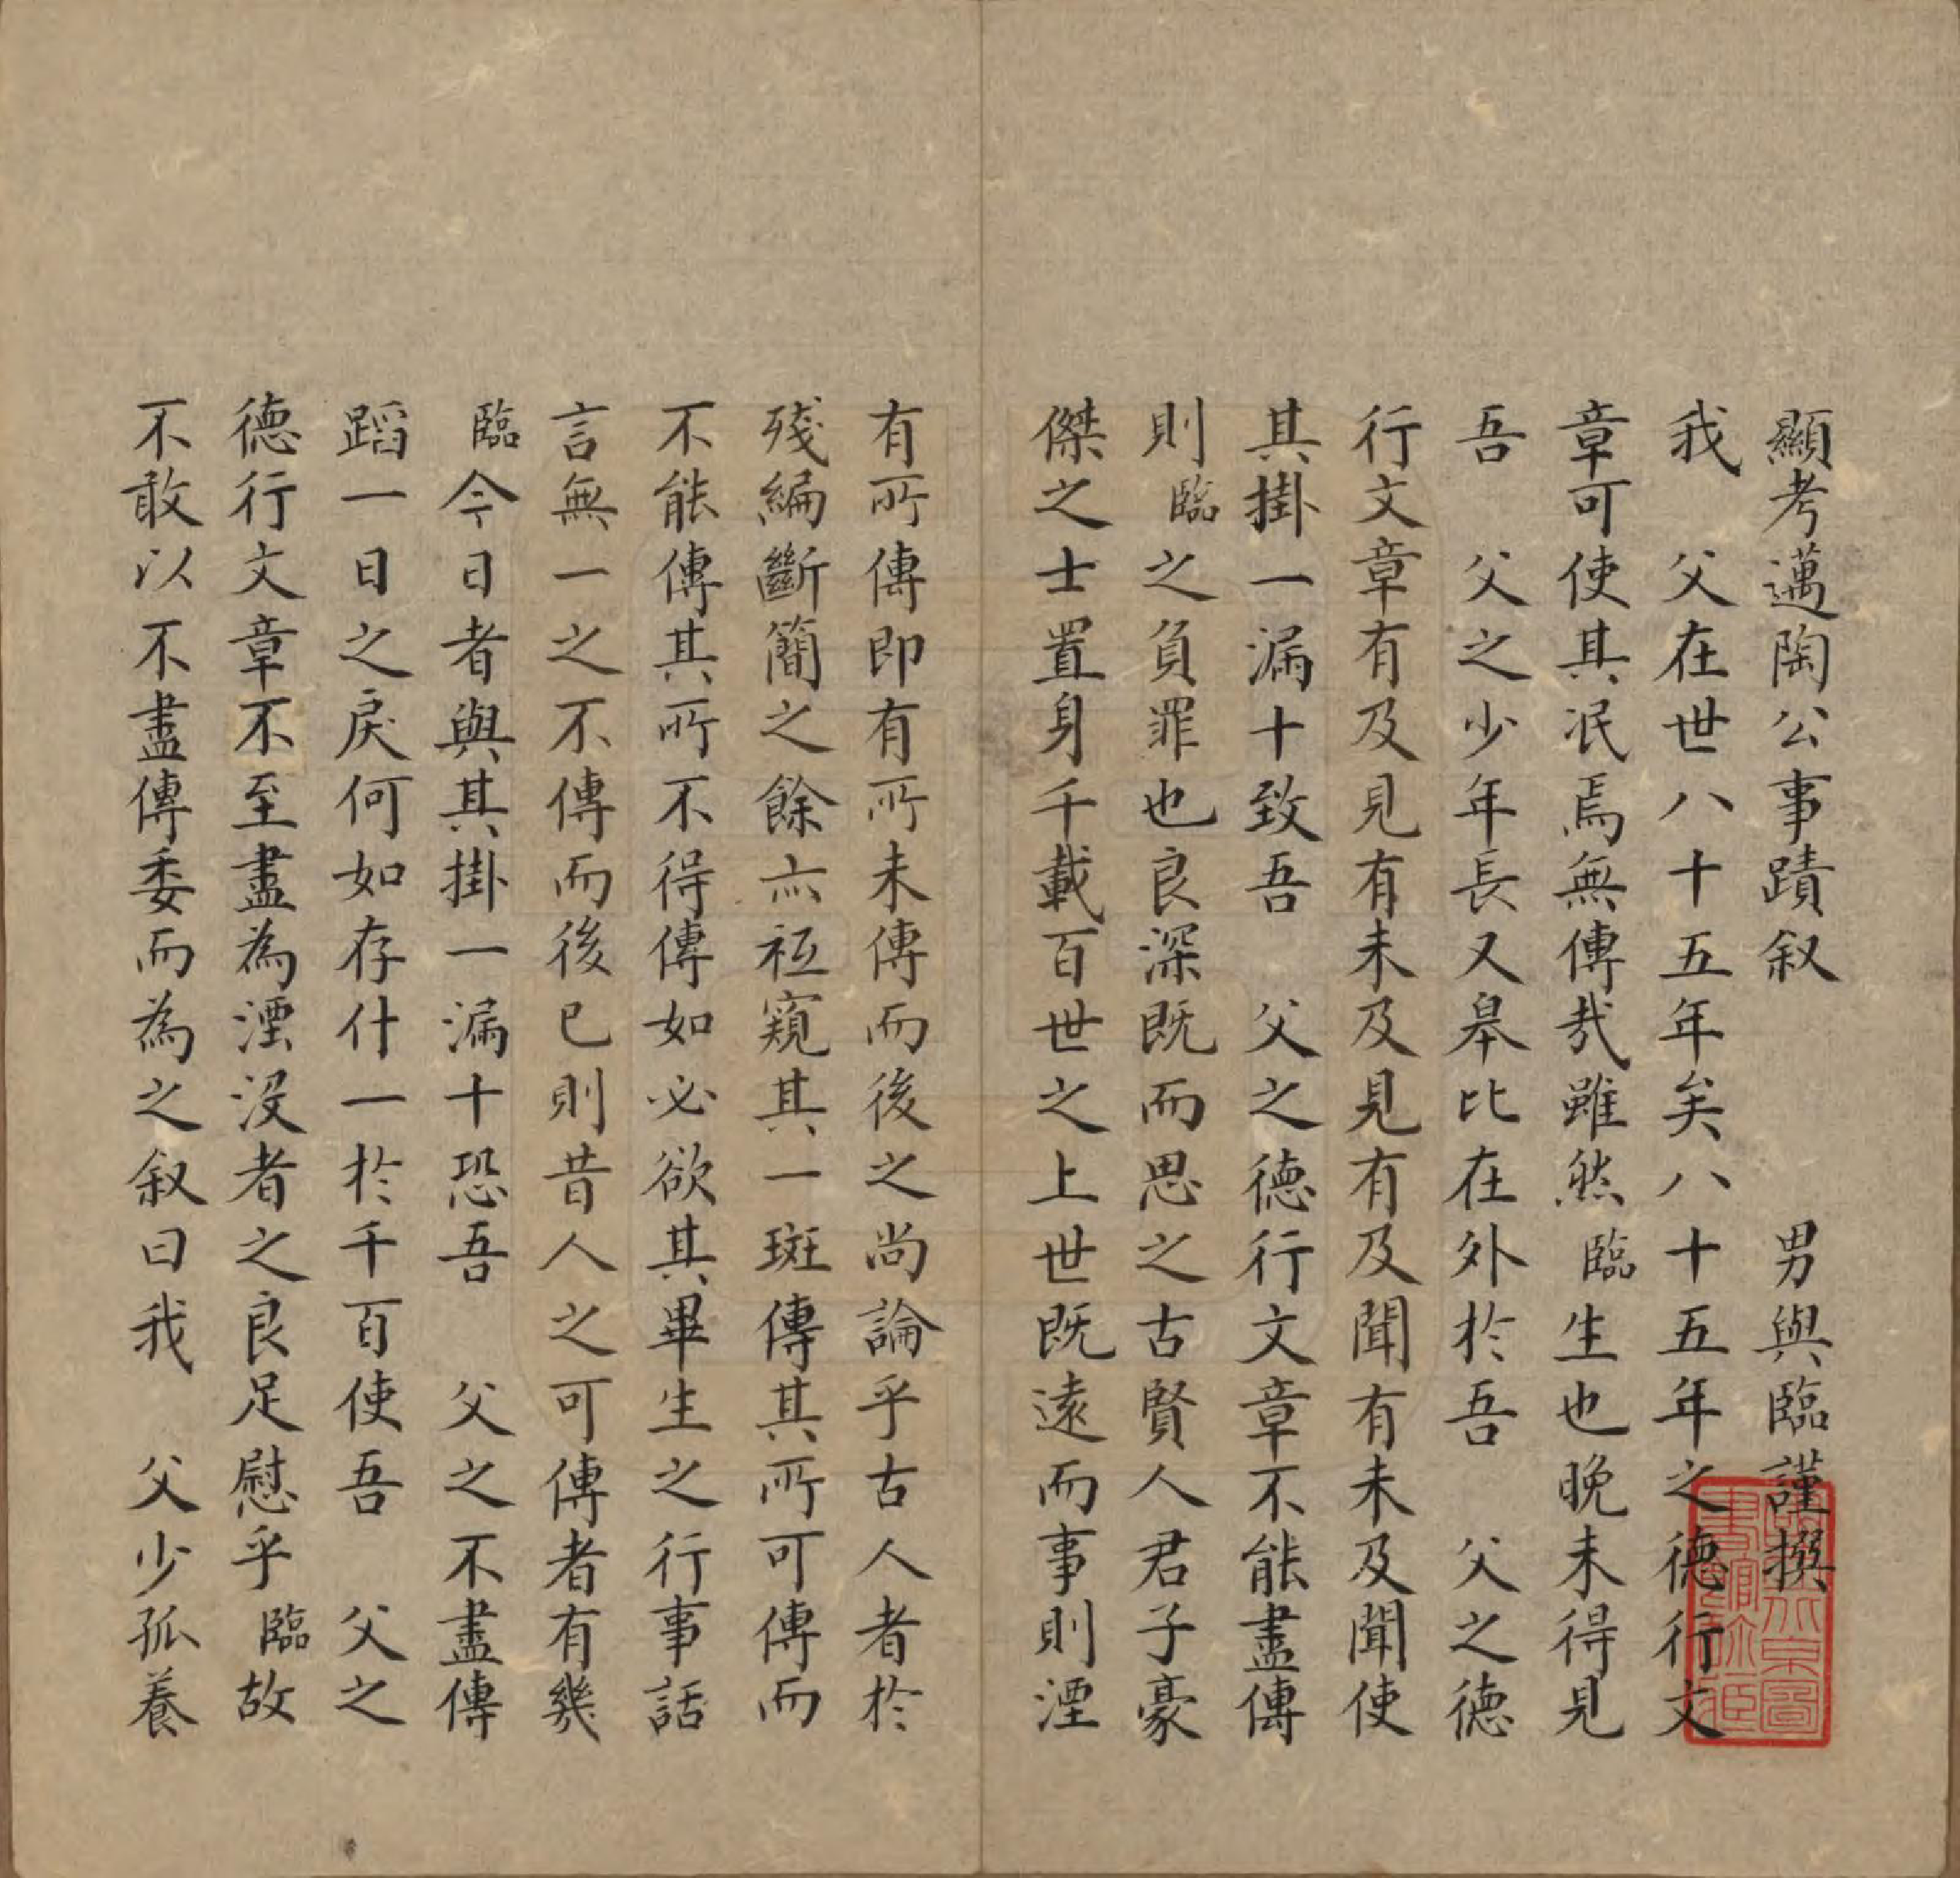 顯考邁陶公事蹟叙　男與臨謹撰
我　父在世八十五年矣八十五年之德行文
章可使其泯焉無傳㢤雖然臨生也晚未得見
吾　父之少年長又皋比在外於吾　父之德
行文章有及見有未及見有及聞有未及聞使
其掛一漏十致吾　父之德行文章不能盡傳
則臨之負罪也良深既而思之古賢人君子豪
傑之士置身千載百世之上世既遠而事則湮
有所傳即有所未傳而後之尚論乎古人者於
殘編斷簡之餘亦秖窺其一斑傳其所可傳而
不能傳其所不得傳如必欲其畢生之行事話
言無一之不傳而後已則昔人之可傳者有幾
臨今日者與其掛一漏十恐吾　父之不盡傳
蹈一日之戾何如存什一於千百使吾　父之
德行文章不至盡為湮没者之良足慰乎臨故
不敢以不盡傳委而為之叙曰我　父少孤養